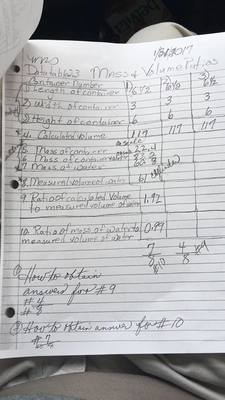 1/31/2017
Data table 2.3 Mass & Volume Ratios
Container Number 2) 3)
1) Length of container 6 1/2 6 1/2 6 1/2
2) Width of container 3 3 3
3) Height of container 6 6 6
4) Calculated Volume 117 117 117
5 Mass of container
6 Mass of container + water
7 Mass of water
8 Measured volume of water 61
9 Ratio of calculated Volume
to measured volume of water 1.92
10. Ratio of mass of water to
measured volume of water 0.89
7 4
8 8
① How to obtain
answers for #9
# 4
# 8
② How to obtain answer for #10
# 7